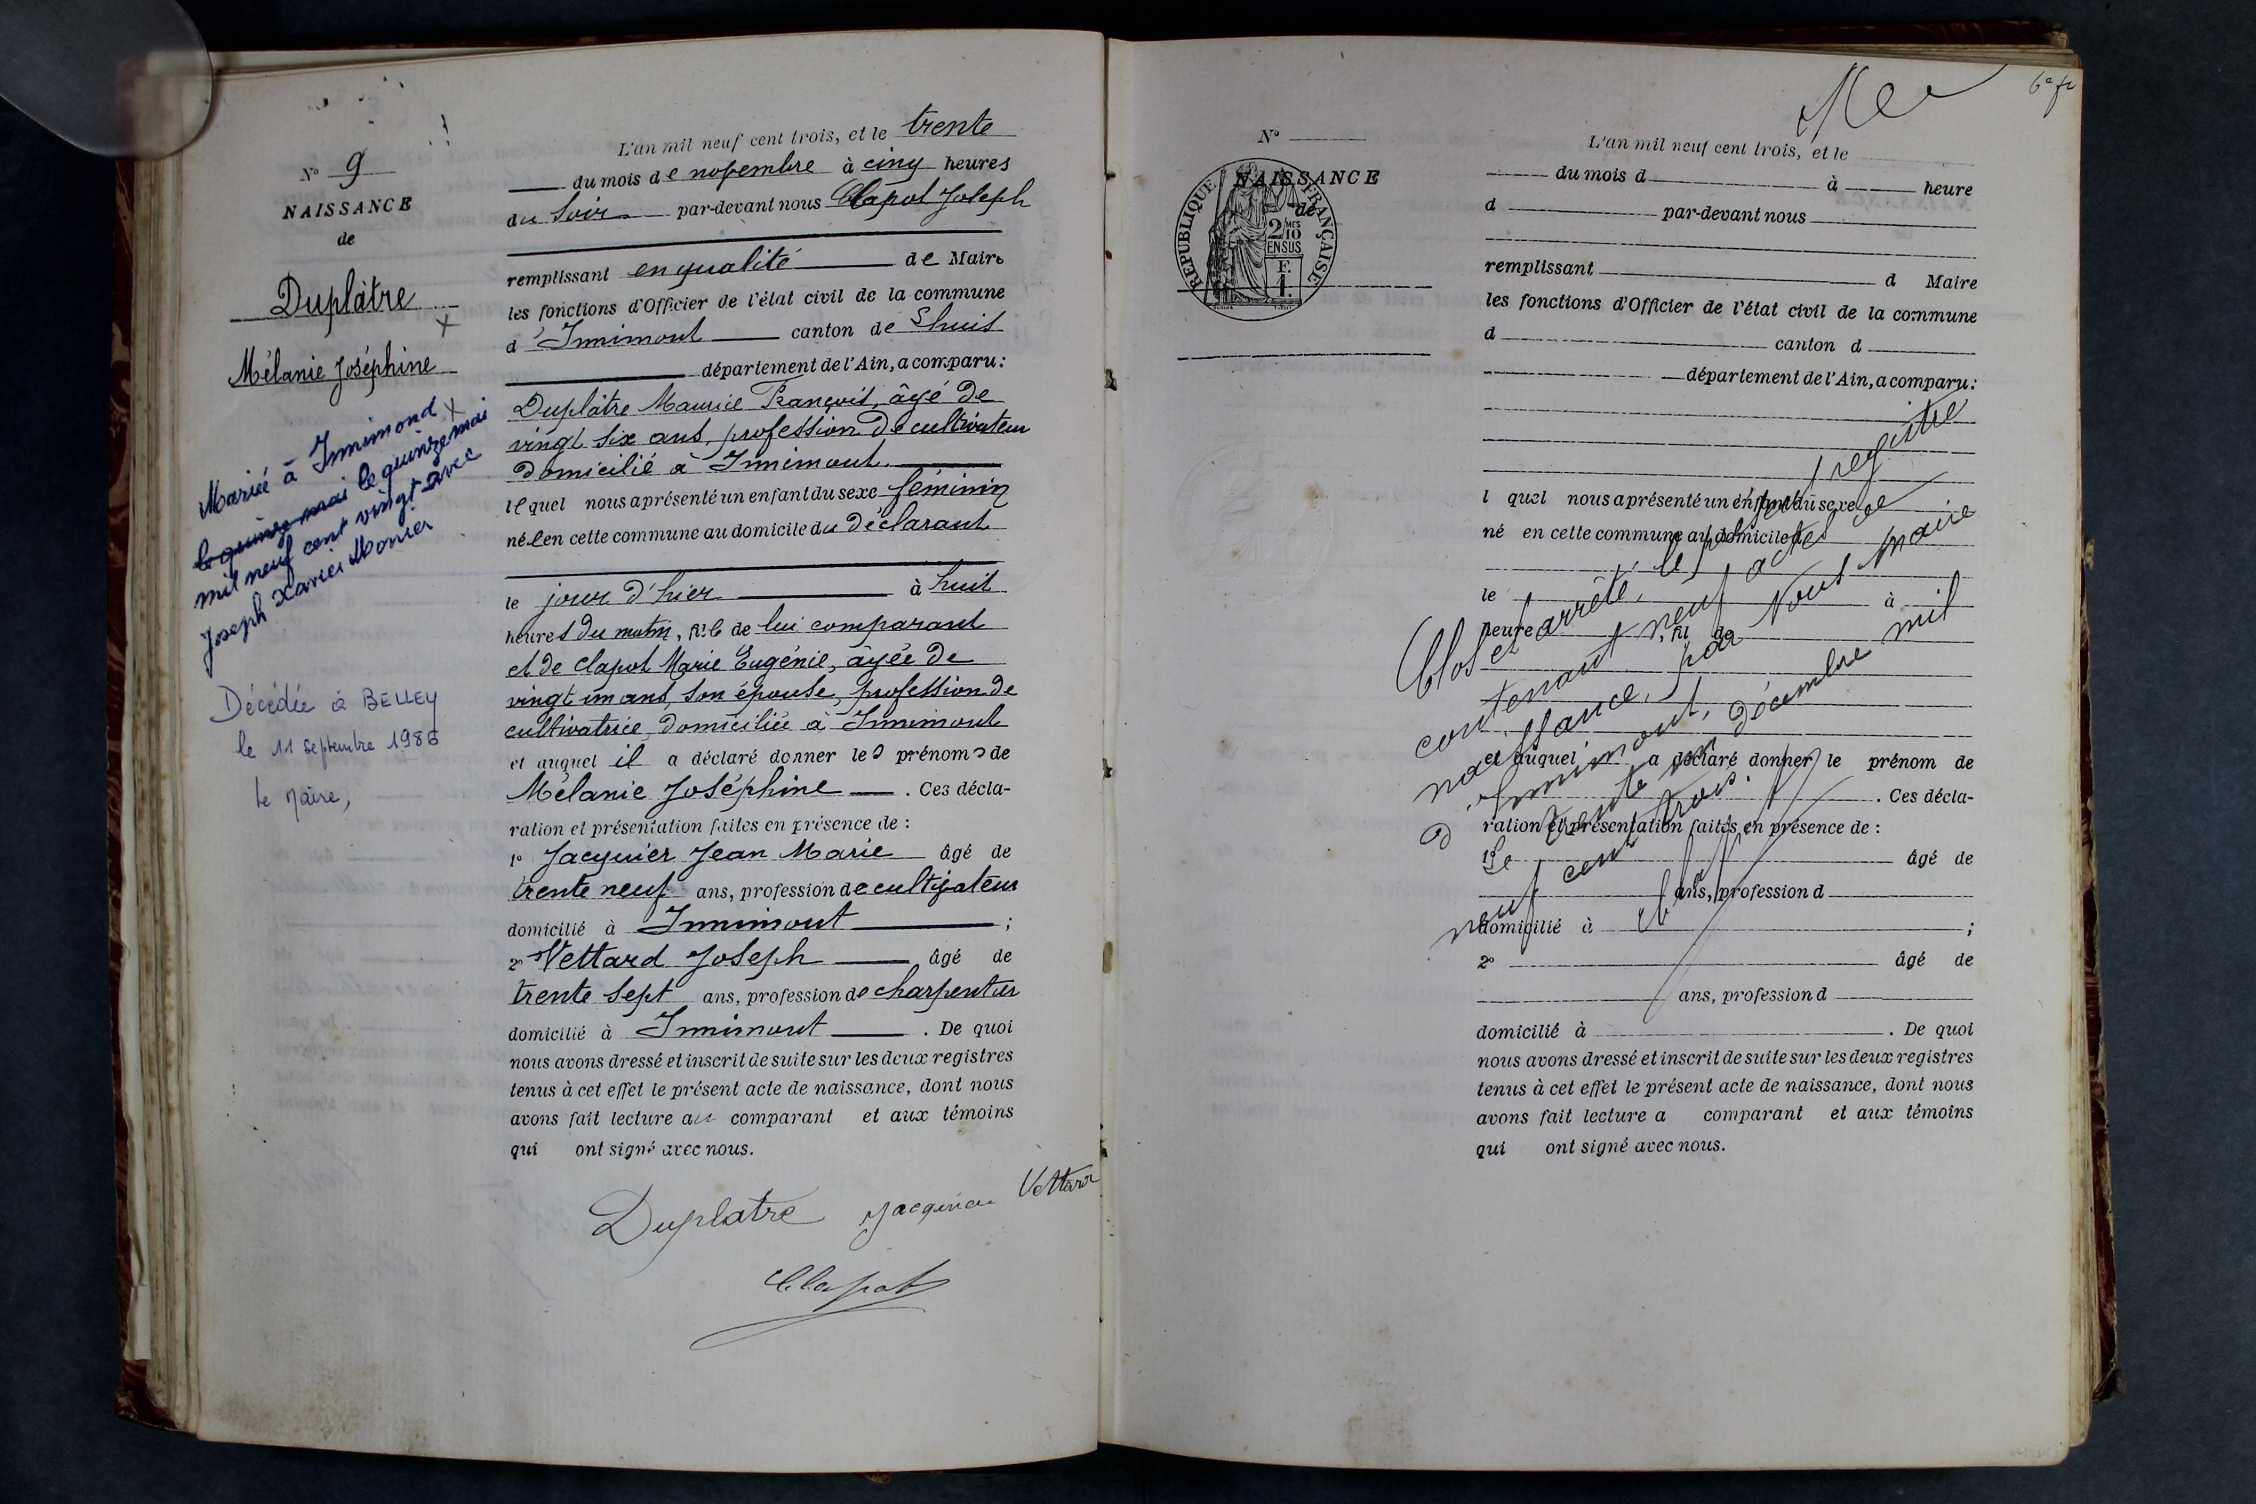 N° 9
NAISSANCE
de
Duplâtre
Mélanie Joséphine
Mariée à Innimond
le quinze mai le quinze mai
mil neuf cent vingt avec
Joseph Xavier Monier
Décédée à BELLEY
le 11 septembre 1986
Le Maire,
L'an mil neuf cent trois, et le trente
du mois de novembre à cinq heures
du soir par-devant nous Clapot Joseph
remplissant en qualité de Maire
les fonctions d'Officier de l'état civil de la commune
d'Innimont canton de Lhuis
département de l'Ain, a comparu :
Duplâtre Maurice François, âgé de
vingt six ans, profession de cultivateur
domicilié à Innimont.
lequel nous a présenté un enfant du sexe féminin
née en cette commune au domicile du déclarant
le jour d'hier à huit
heures du matin, fille de lui comparant
et de Clapot Marie Eugénie, âgée de
vingt un ans, son épouse, profession de
cultivatrice, domiciliée à Innimont
et auquel il a déclaré donner les prénoms de
Mélanie Joséphine . Ces décla-
ration et présentation faites en présence de :
1° Jacquier Jean Marie âgé de
trente neuf ans, profession de cultivateur
domicilié à Innimont ;
2° Vettard Joseph âgé de
trente sept ans, profession de charpentier
domicilié à Innimont . De quoi
nous avons dressé et inscrit de suite sur les deux registres
tenus à cet effet le présent acte de naissance, dont nous
avons fait lecture au comparant et aux témoins
qui ont signé avec nous.
Duplatre Jacquier Vettard
Clapot
6e f
N°
NAISSANCE
de
REPUBLIQUE FRANÇAISE
2/10 MES
EN SUS
F.
1.
L'an mil neuf cent trois, et le
du mois d à heure
d par-devant nous
remplissant d Maire
les fonctions d'Officier de l'état civil de la commune
d canton d
département de l'Ain, a comparu :
l quel nous a présenté un enfant du sexe
né en cette commune au domicile d
le à
heure , fil de
et auquel a déclaré donner le prénom de
. Ces décla-
ration et présentation faites en présence de :
1° âgé de
ans, profession d
domicilié à ;
2° âgé de
ans, profession d
domicilié à . De quoi
nous avons dressé et inscrit de suite sur les deux registres
tenus à cet effet le présent acte de naissance, dont nous
avons fait lecture a comparant et aux témoins
qui ont signé avec nous.
Clos et arrêté, le présent registre
contenant neuf actes de
naissance, par Nous Maire
d'Innimont,
Le trente un décembre mil
neuf cent trois.
Clapot